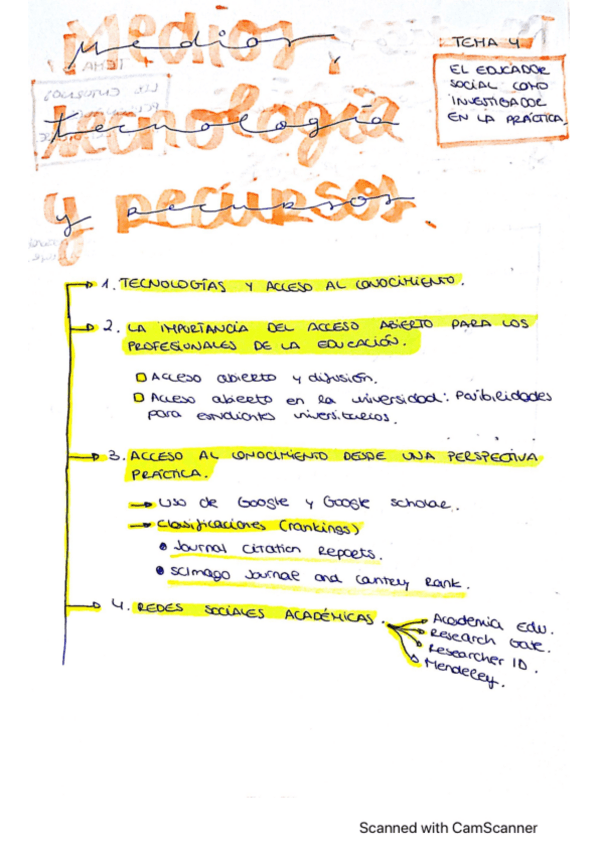 Medios,
tecnología
y recursos.
TEMA 4
EL EDUCADOR
SOCIAL COMO
INVESTIGADOR
EN LA PRÁCTICA.
1. TECNOLOGÍAS Y ACCESO AL CONOCIMIENTO.
2. LA IMPORTANCIA DEL ACCESO ABIERTO PARA LOS
PROFESIONALES DE LA EDUCACIÓN.
Acceso abierto y difusión.
Acceso abierto en la universidad: Posibilidades
para estudiantes universitarios.
3. ACCESO AL CONOCIMIENTO DESDE UNA PERSPECTIVA
PRÁCTICA.
Uso de Google y Google Scholar.
Clasificaciones (rankings)
Journal Citation Reports.
SCImago Journal and Country Rank.
4. REDES SOCIALES ACADÉMICAS.
Academia Edu.
Research Gate.
Researcher ID.
Mendeley.
Scanned with CamScanner